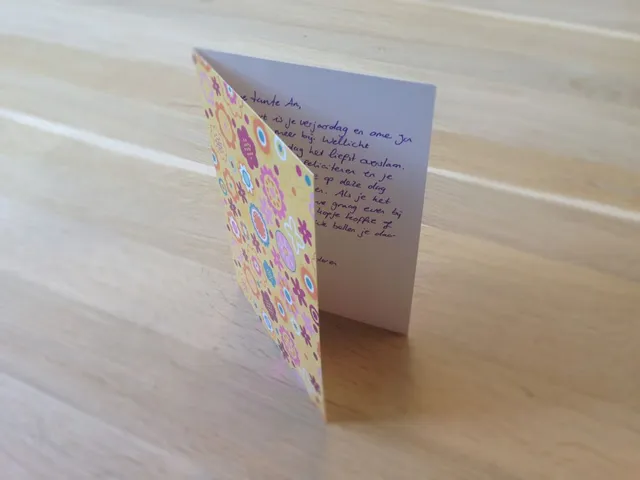 e tante An,
t is je verjaardag en ome Jan
meer bij. Wellicht
dag het liefst overslaan.
feliciteren en je
op deze dag
en. Als je het
we graag even bij
kopje koffie of
We bellen je daar